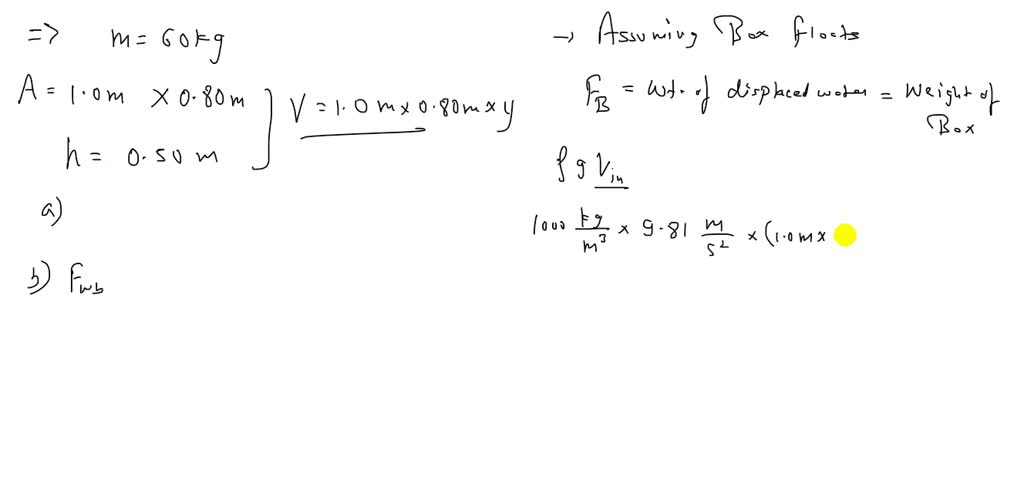 => m = 60kg
A = 1.0m × 0.80m
h = 0.50 m
V = 1.0 m × 0.80m × y
a)
b) Fwb
→ Assuming Box floats
FB = wt. of displaced water = Weight of Box
ρ g Vin
1000 kg/m³ × 9.81 m/s² × (1.0m×